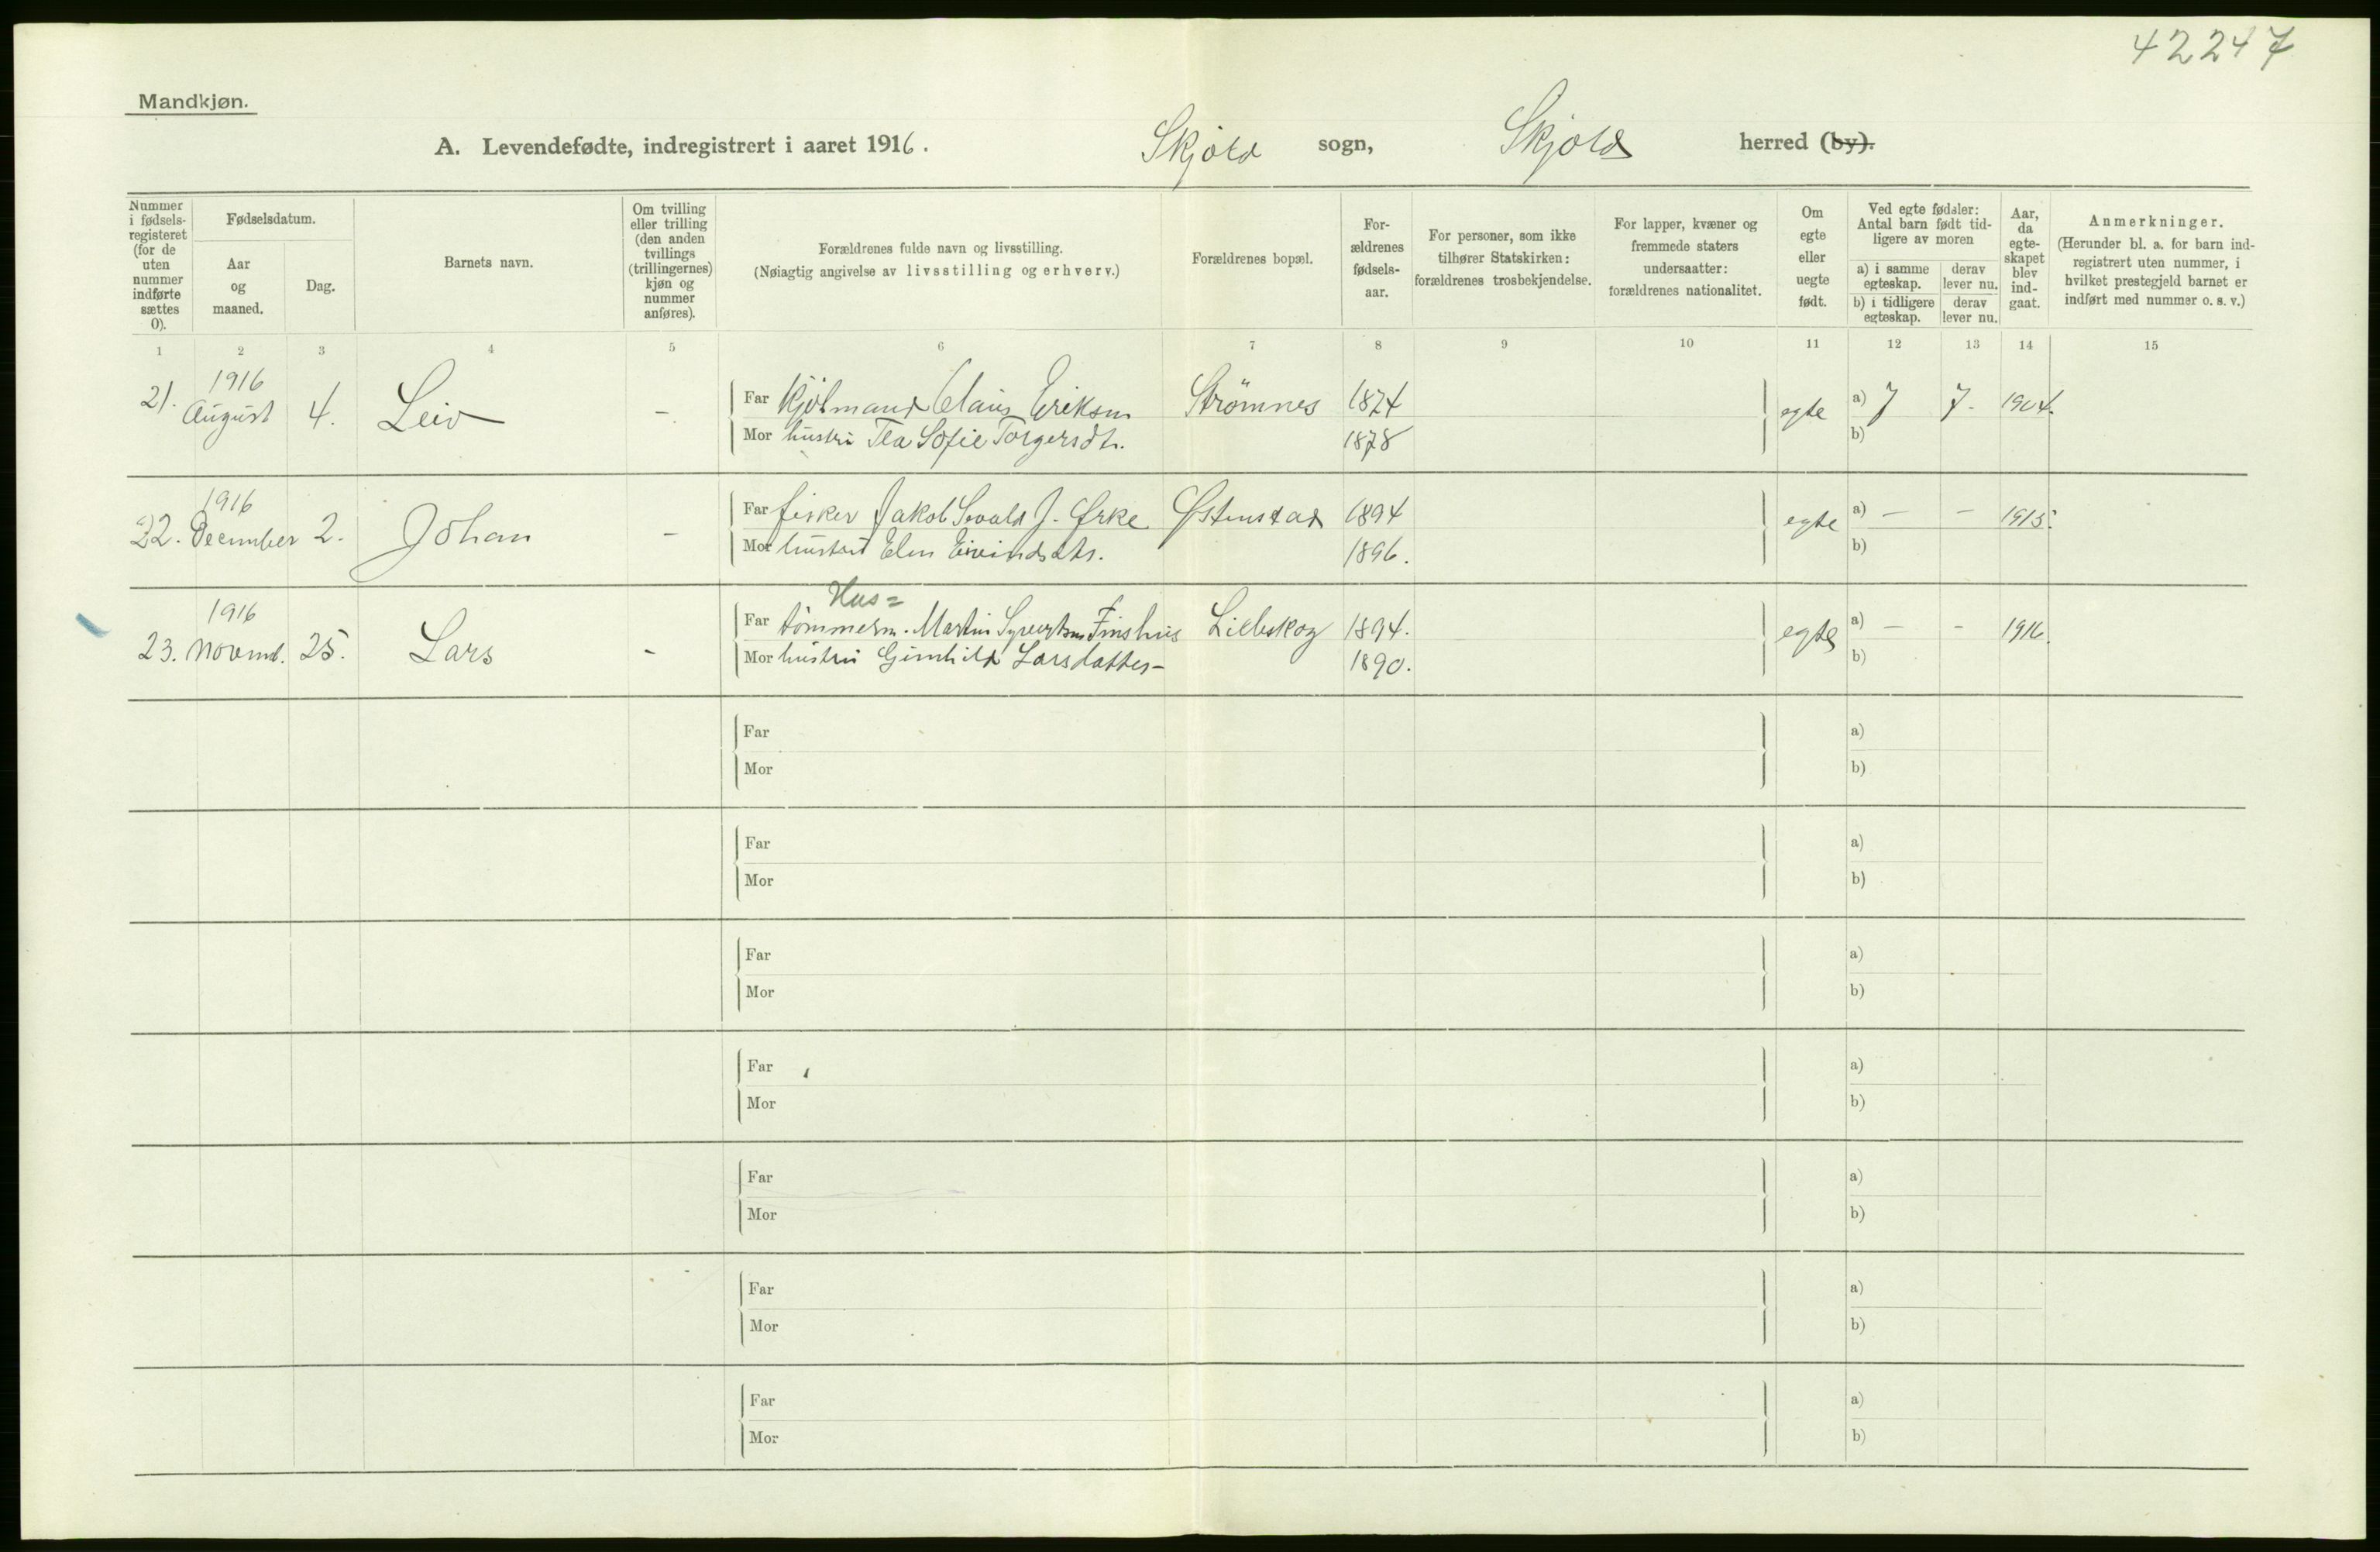 42247
Mandkjøn.
A. Levendefødte, indregistrert i aaret 1916. Skjold sogn, Skjold herred (by).
Nummer i fødsels-registeret (for de uten nummer indførte sættes 0).
Fødselsdatum.
Aar og maaned.
Dag.
Barnets navn.
Om tvilling eller trilling (den anden tvillings (trillingernes) kjøn og nummer anføres).
Forældrenes fulde navn og livsstilling.
(Nøiagtig angivelse av livsstilling og erhverv.)
Forældrenes bopæl.
For-ældrenes fødsels-aar.
For personer, som ikke tilhører Statskirken: forældrenes trosbekjendelse.
For lapper, kvæner og fremmede staters undersaatter: forældrenes nationalitet.
Om egte eller uegte født.
Ved egte fødsler: Antal barn født tid-ligere av moren
a) i samme egteskap.
derav lever nu.
b) i tidligere egteskap.
derav lever nu.
Aar, da egte-skapet blev ind-gaat.
Anmerkninger.
(Herunder bl. a. for barn ind-registrert uten nummer, i hvilket prestegjeld barnet er indført med nummer o. s. v.)
1 2 3 4 5 6 7 8 9 10 11 12 13 14 15
21. 1916 August 4. Leiv - Far Claus Eriksen Strömnes 1874 egte a) 7 7. 1904.
Mor hustru Tea Sofie Torgersdt. 1878 b)
22. 1916 December 2. Johan - Far fisker Jakob Sevald J. Ørke Østenstad 1894 egte a) - - 1915.
Mor hustru Elen Eivindsdtr. 1896. b)
Hus=
23. 1916 Novemb. 25. Lars - Far tömmerm. Martin Syvertsen Finshus Lilleskog 1894. egte a) - - 1916.
Mor hustru Gunhild Larsdatter- 1890. b)
Far a)
Mor b)
Far a)
Mor b)
Far a)
Mor b)
Far a)
Mor b)
Far a)
Mor b)
Far a)
Mor b)
Far a)
Mor b)